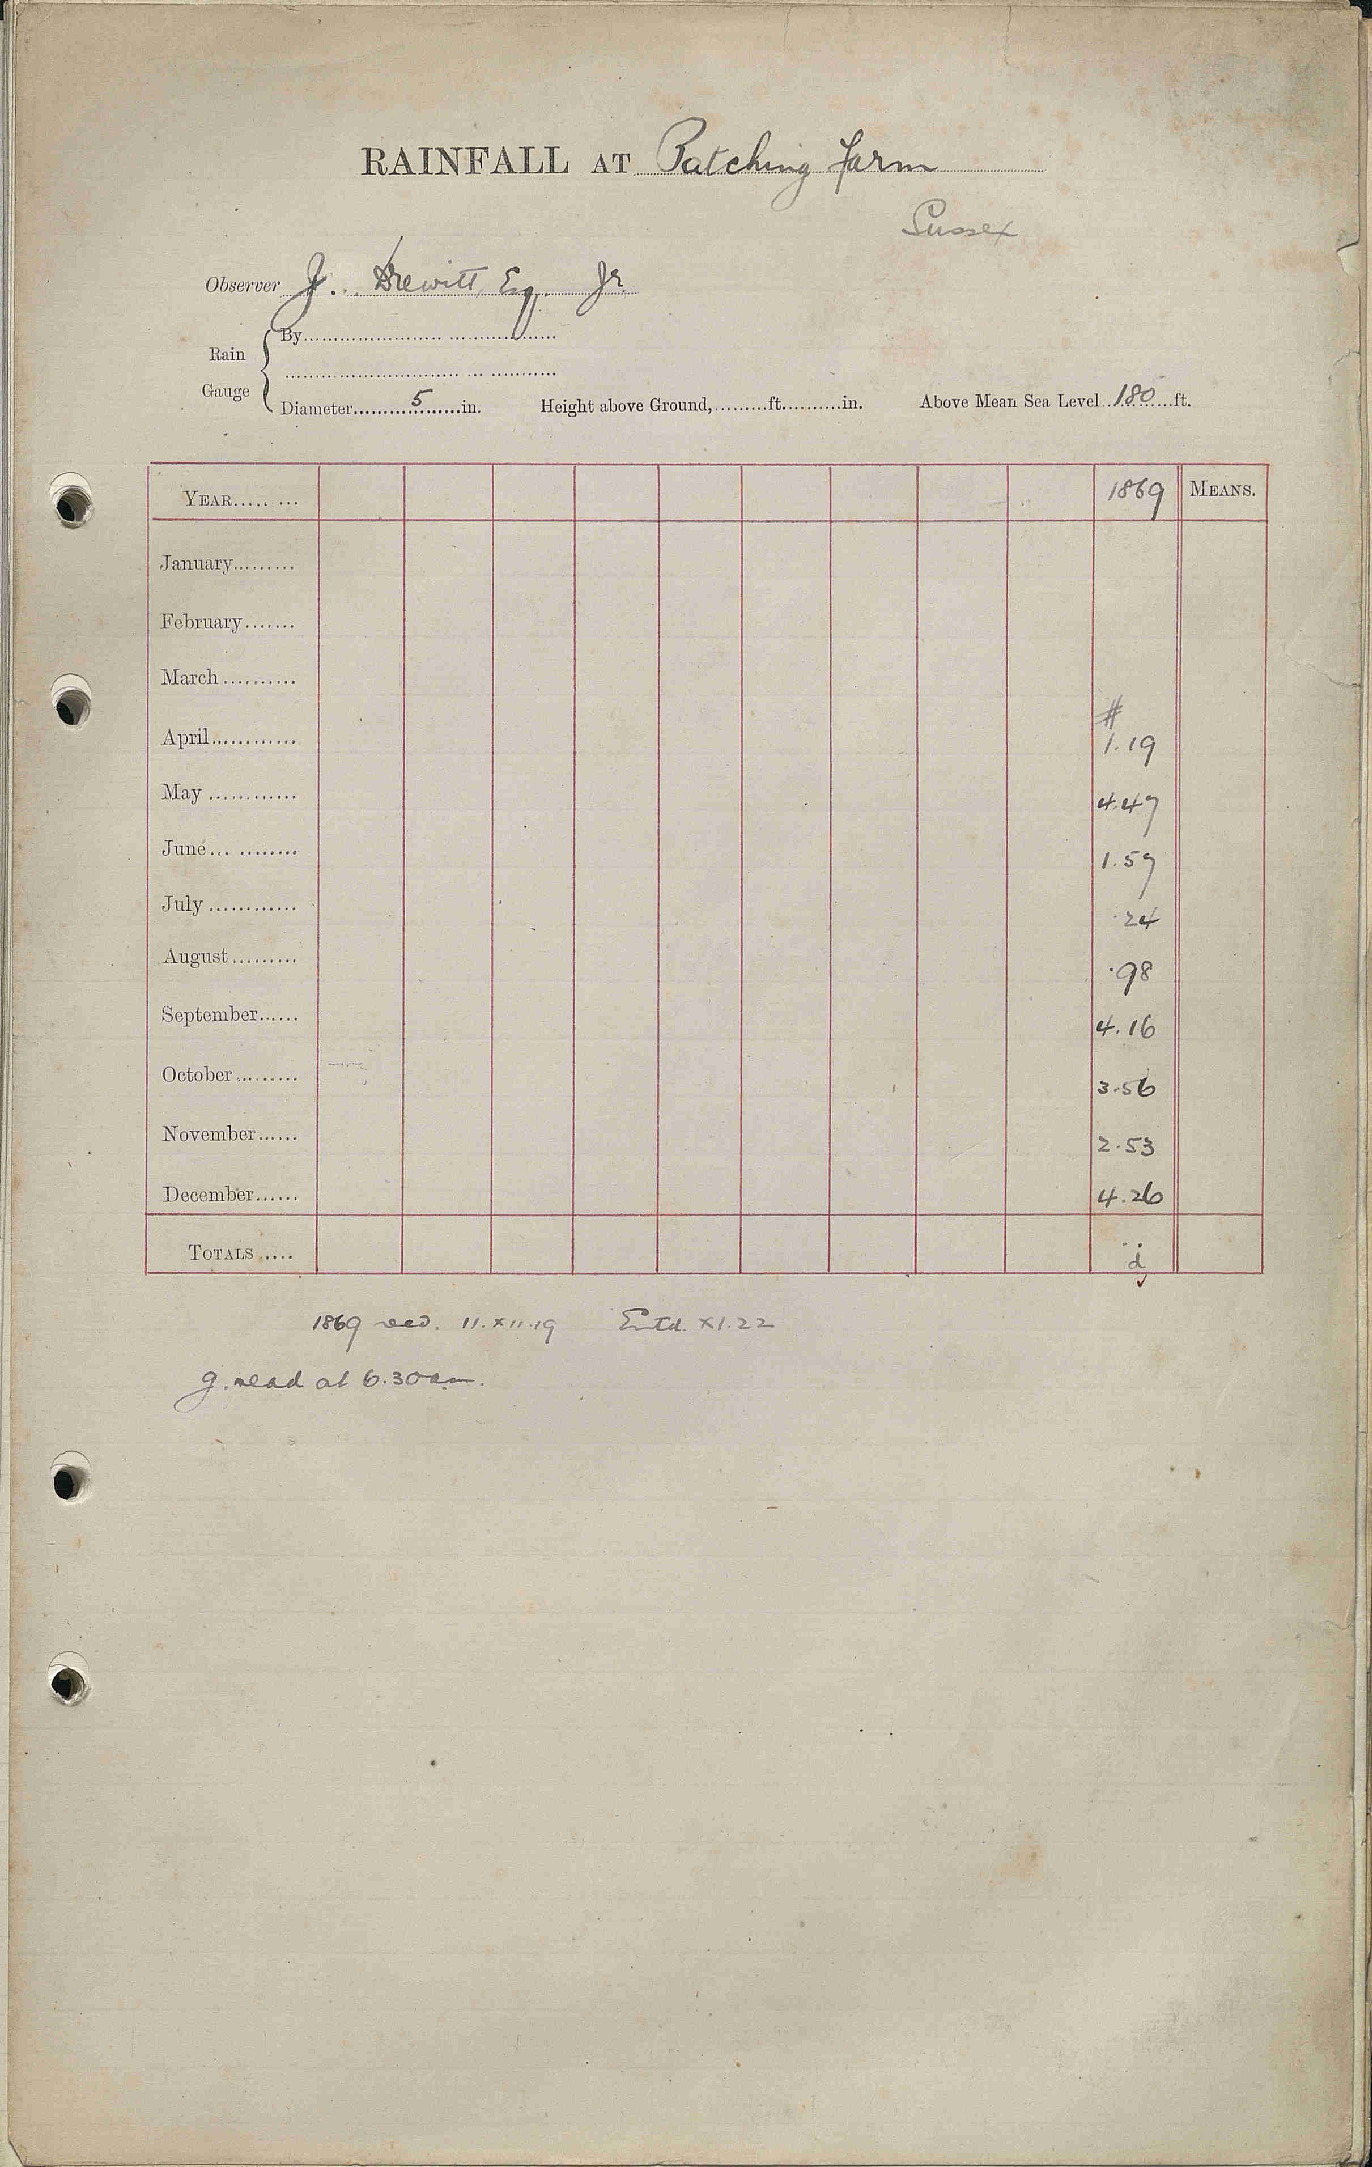 RAINFALL AT Patching farm
Sussex
Observer J. Drewitt, Esq. Jr
Rain Gauge { By
Diameter 5 in. Height above Ground, ft. in. Above Mean Sea Level 180 ft.
YEAR 1869 MEANS.
January
February
March
#
April 1.19
May 4.47
June 1.57
July .24
August .98
September 4.16
October 3.56
November 2.53
December 4.26
TOTALS d
1869 recd. 11.XII.19 Entd. XI.22
g. read at 6.30 am.